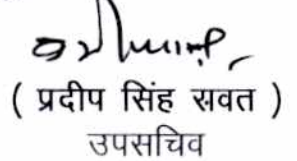 ( प्रदीप सिंह रावत )
उपसचिव